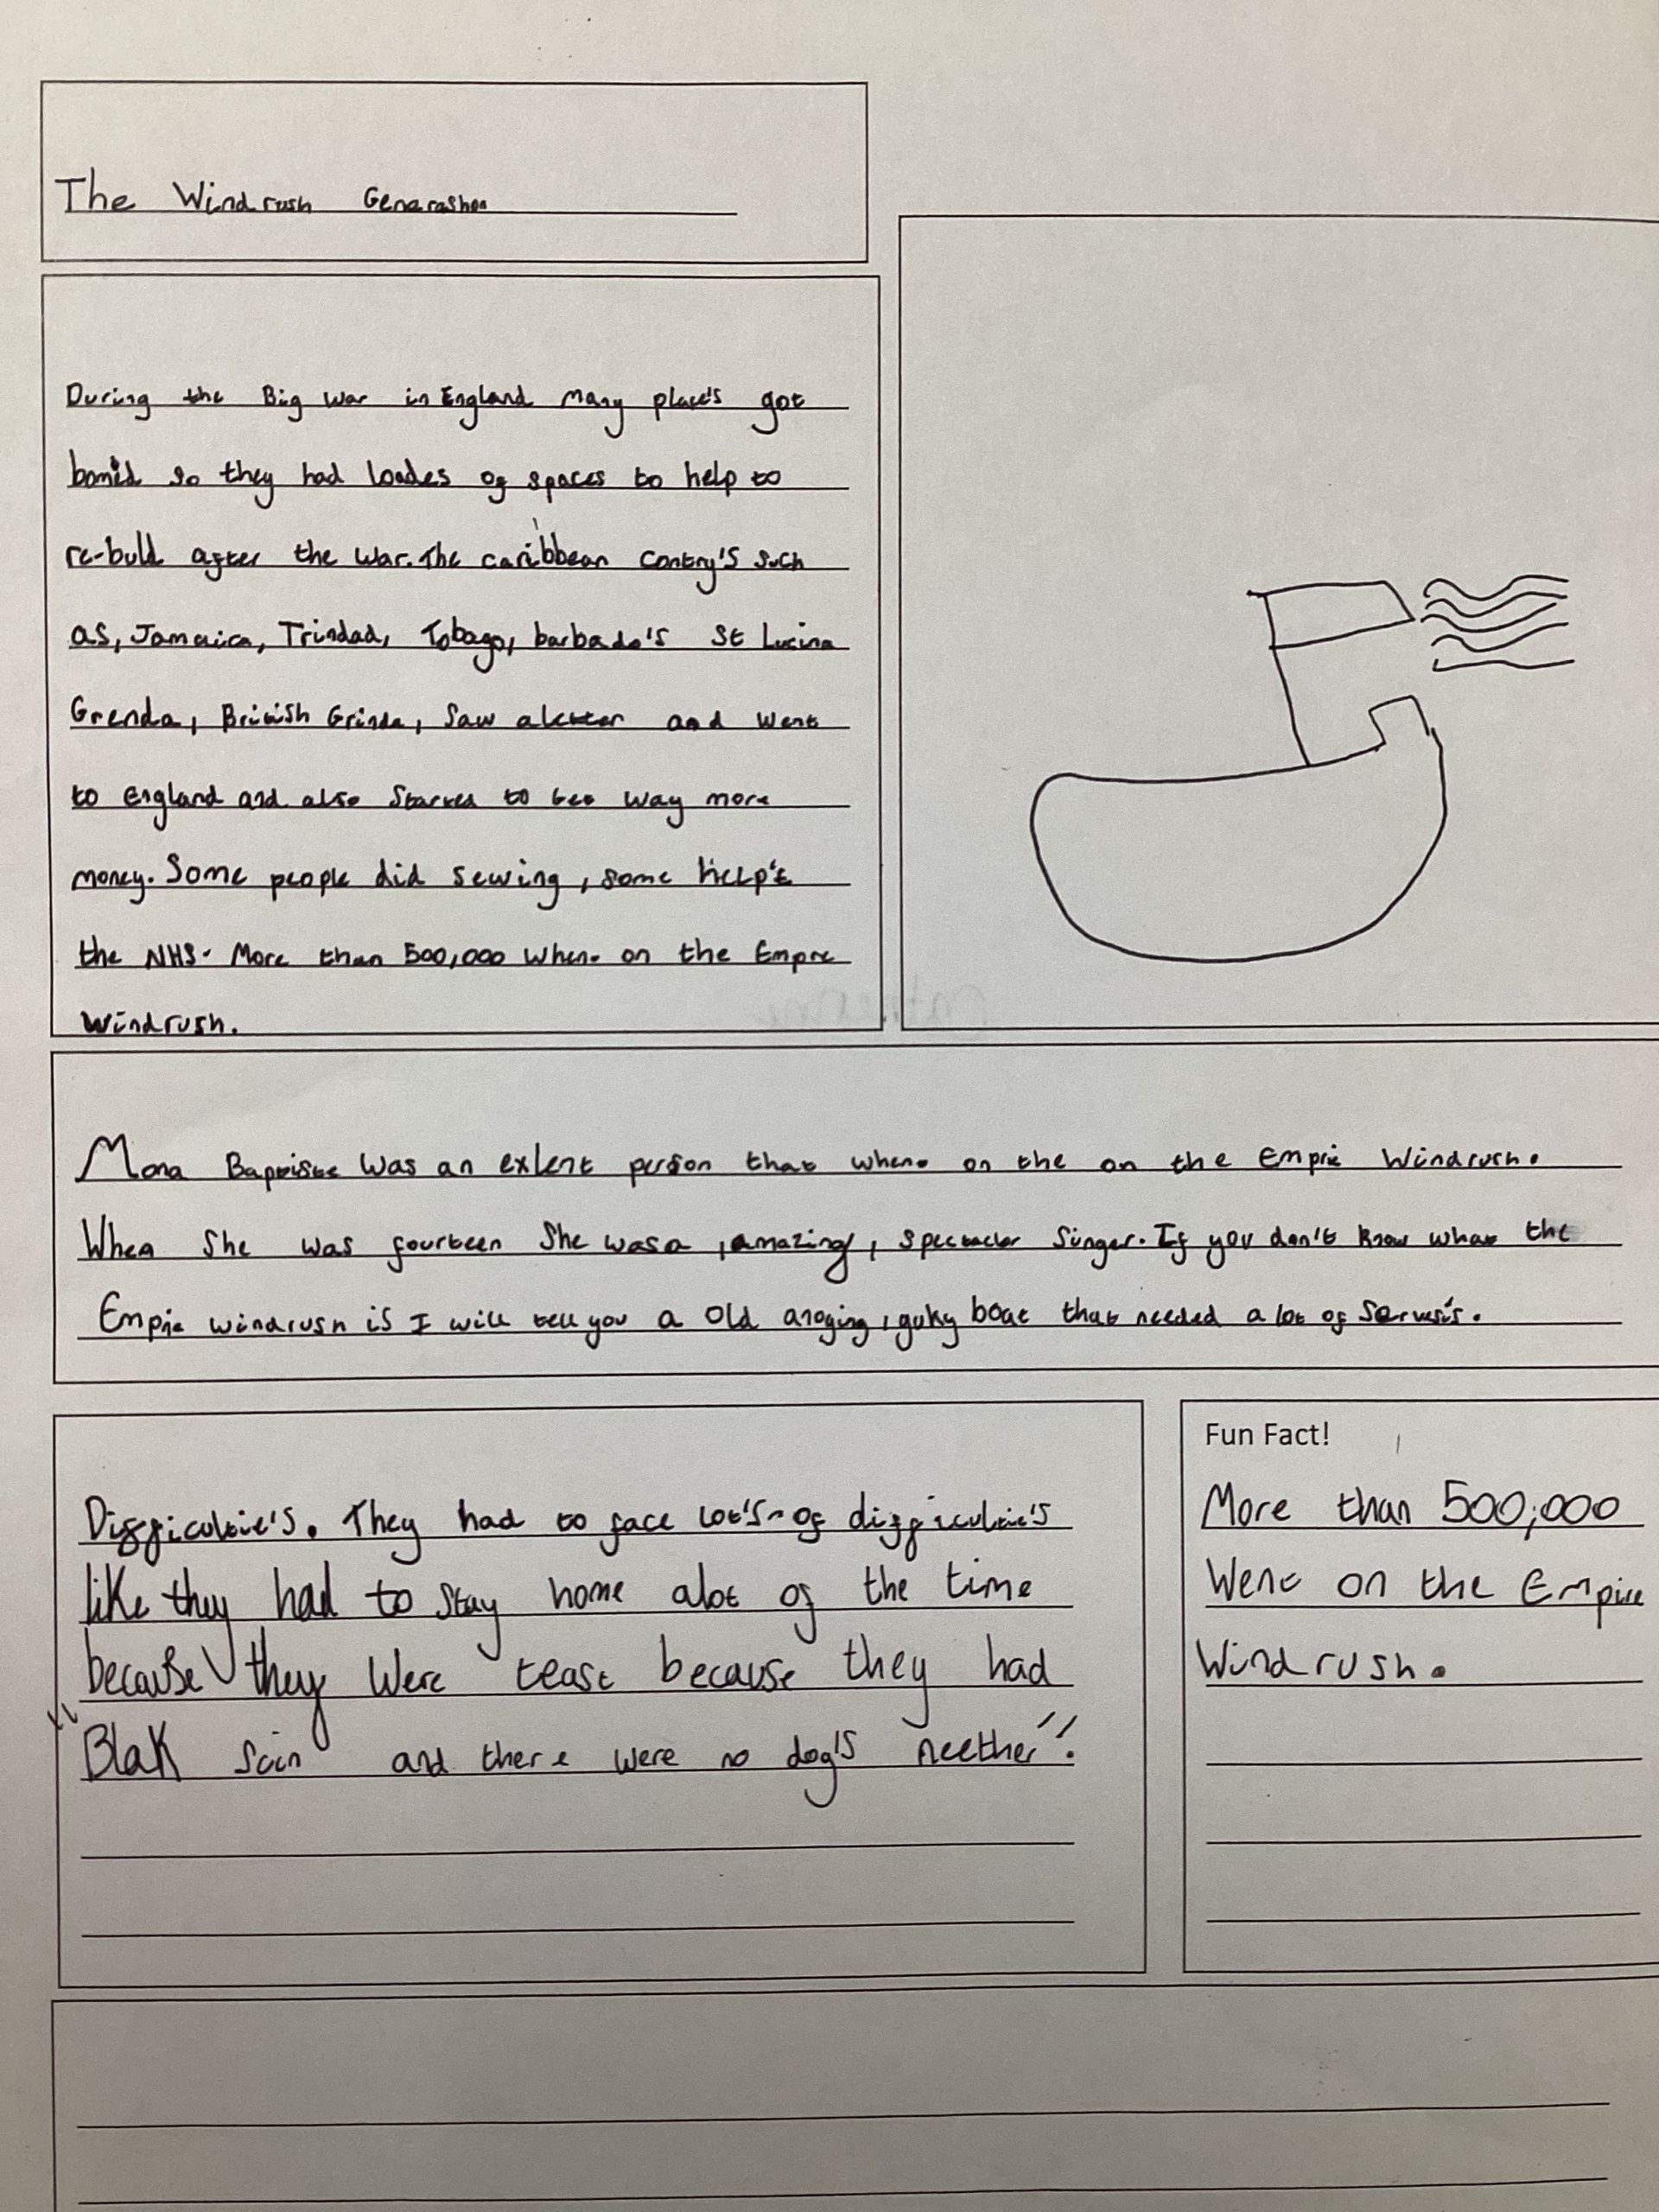 The Windrush Generashon
During the Big war in England many place's got
bomid so they had loades of spaces to help to
re-buld after the war. The caribbean contry's such
as, Jamaica, Trindad, Tobago, barbado's St Lucina
Grenda, British Grinda, Saw aletter and went
to England and also Started to get way more
money. Some people did sewing, some help't
the NHS. More than 500,000 when on the Empre
Windrush.
Mona Baptiste was an exlent person that when on the on the Empie Windrush.
When She was fourteen She was a , amazing, spectacler Singer. If you don't know what the
Empie windrush is I will tell you a Old anoying, guky boat that needed a lot of Servesis.
Difficultie's. They had to face lot's of difficultie's
like they had to stay home alot of the time
because they were teast because they had
"Blak scin and there were no dog's neether".
Fun Fact!
More than 500,000
Went on the Empire
Windrush.